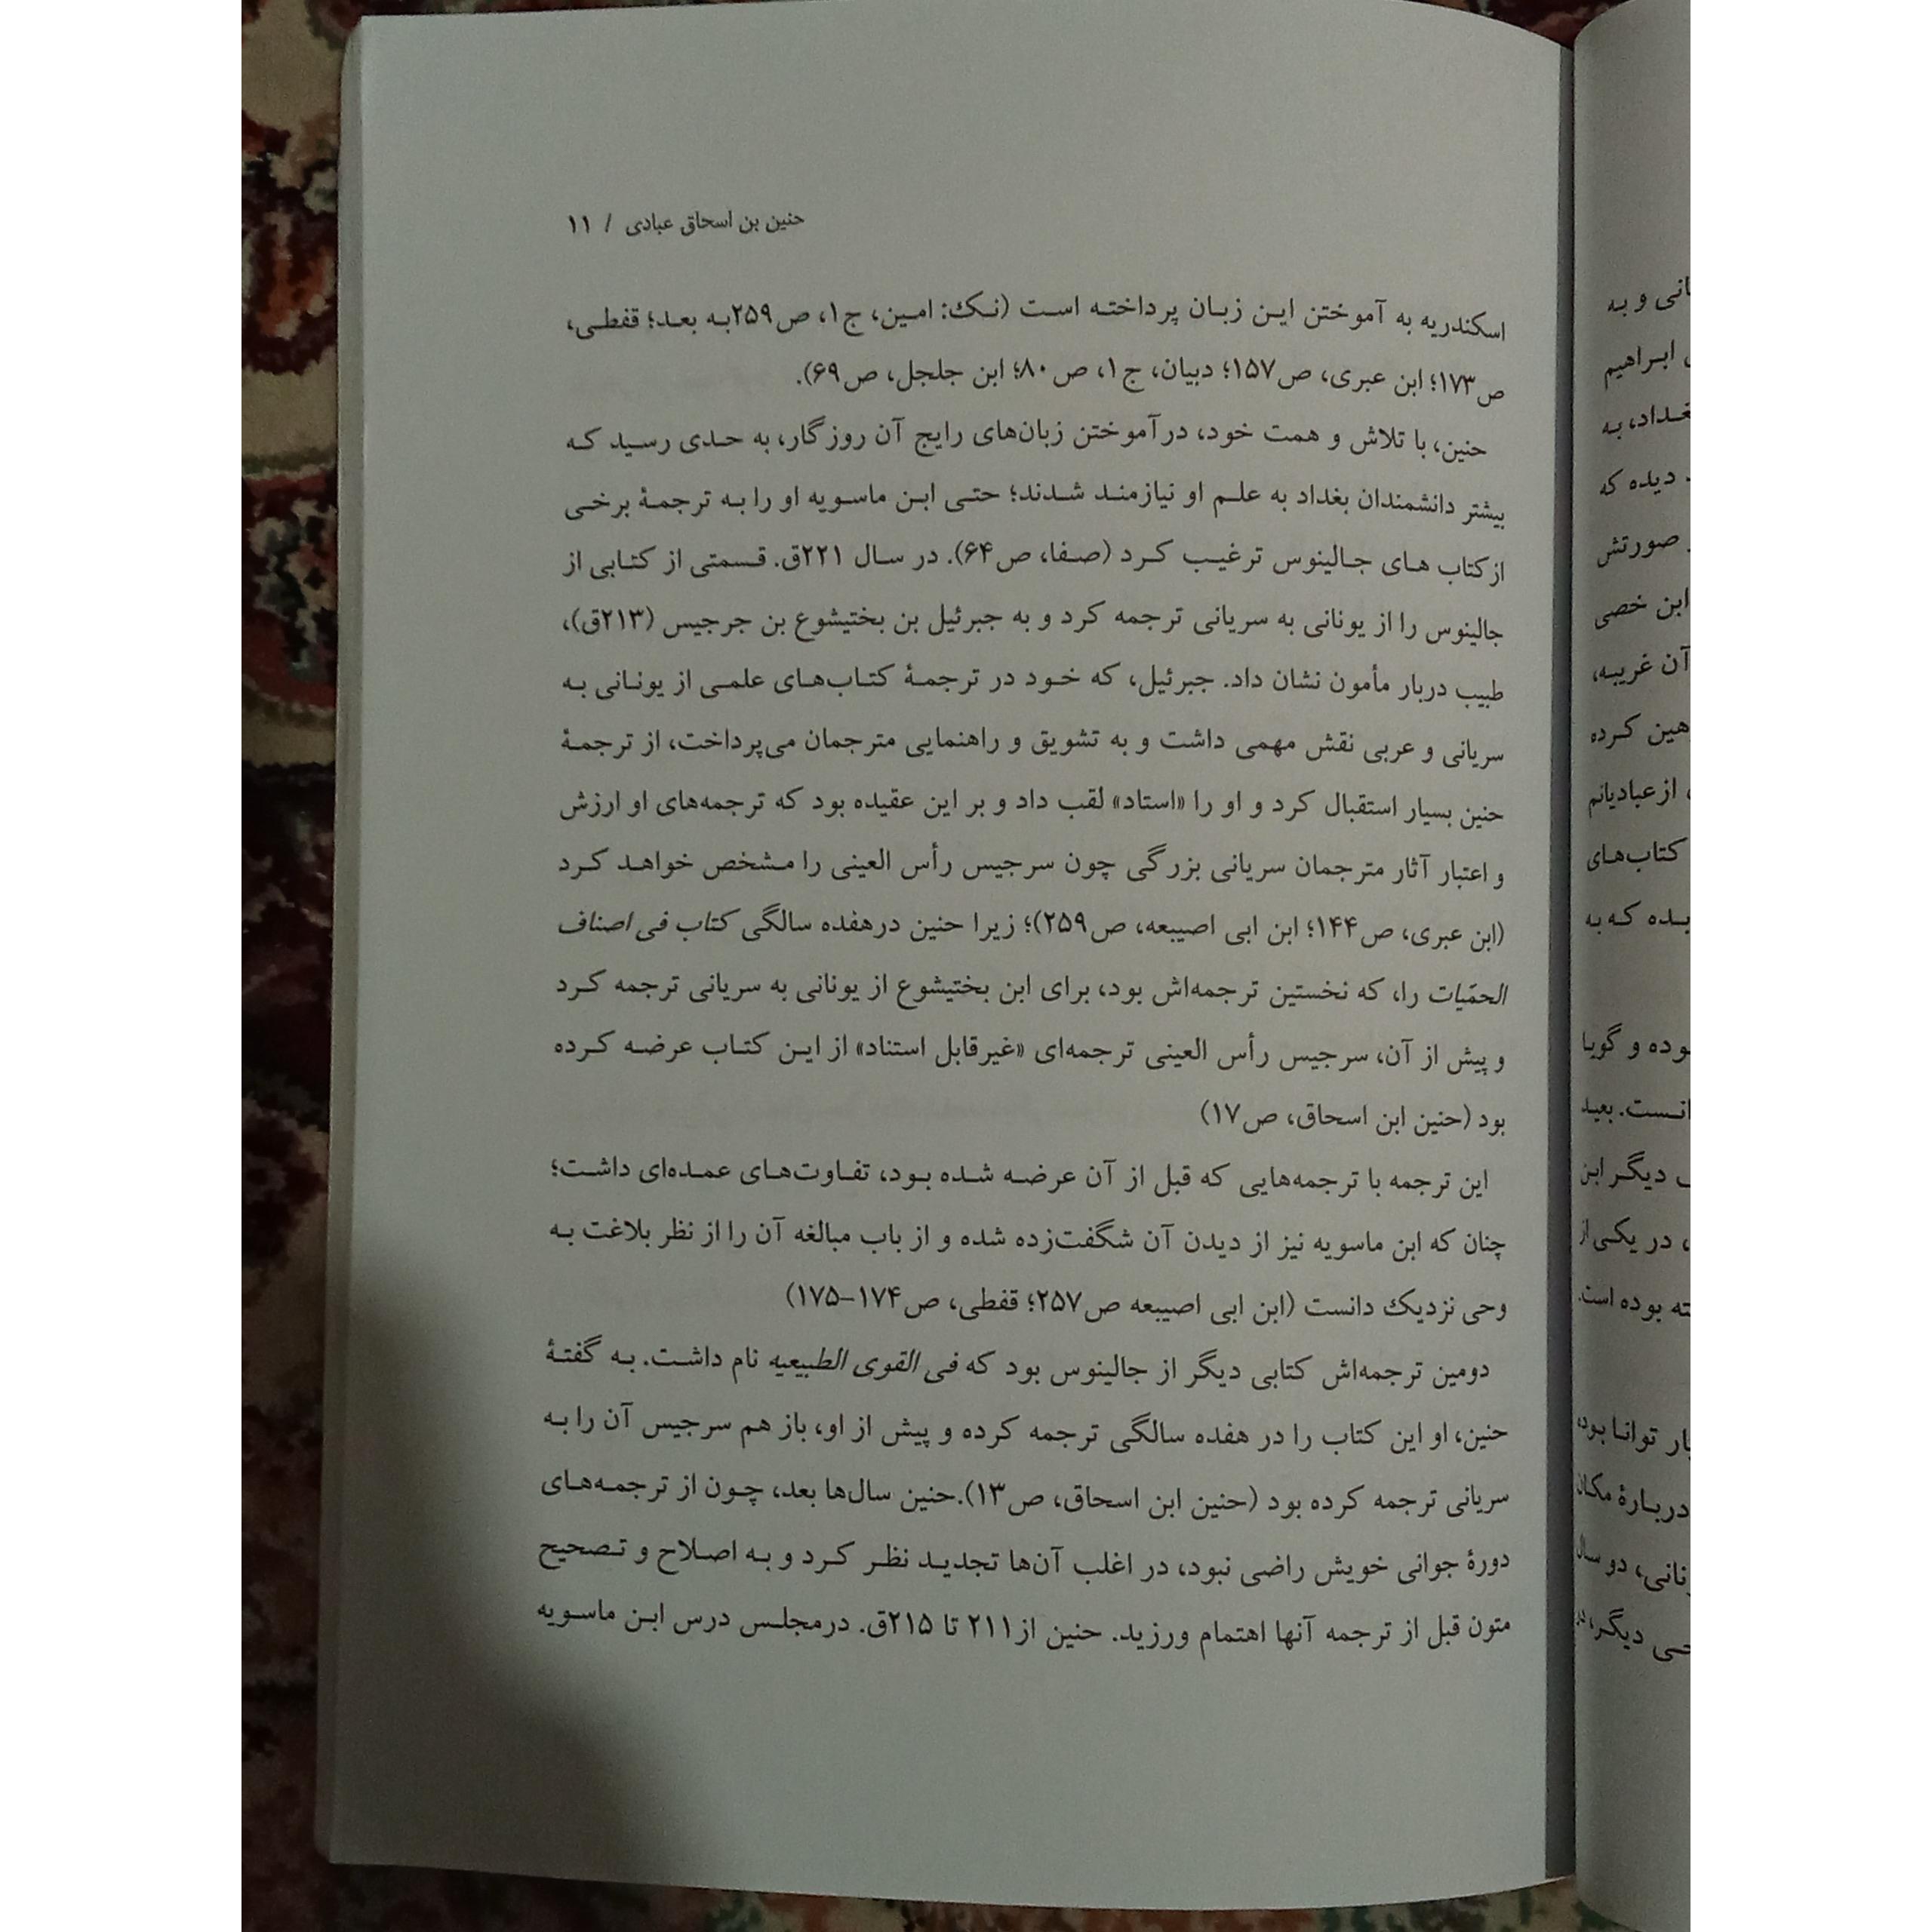 حنین بن اسحاق عبادی / ۱۱
اسکندریه به آموختن این زبان پرداخته است (نک: امین، ج۱، ص۲۵۹به بعد؛ قفطی،
ص۱۷۳؛ ابن عبری، ص۱۵۷؛ دبیان، ج۱، ص۸۰؛ ابن جلجل، ص۶۹).
حنین، با تلاش و همت خود، درآموختن زبان‌های رایج آن روزگار، به حدی رسید که
بیشتر دانشمندان بغداد به علم او نیازمند شدند؛ حتی ابن ماسویه او را به ترجمهٔ برخی
ازکتاب های جالینوس ترغیب کرد (صفا، ص۶۴). در سال ۲۲۱ق. قسمتی از کتابی از
جالینوس را از یونانی به سریانی ترجمه کرد و به جبرئیل بن بختیشوع بن جرجیس (۲۱۳ق)،
طبیب دربار مأمون نشان داد. جبرئیل، که خود در ترجمهٔ کتاب‌های علمی از یونانی به
سریانی و عربی نقش مهمی داشت و به تشویق و راهنمایی مترجمان می‌پرداخت، از ترجمهٔ
حنین بسیار استقبال کرد و او را «استاد» لقب داد و بر این عقیده بود که ترجمه‌های او ارزش
و اعتبار آثار مترجمان سریانی بزرگی چون سرجیس رأس العینی را مشخص خواهد کرد
(ابن عبری، ص۱۴۴؛ ابن ابی اصیبعه، ص۲۵۹)؛ زیرا حنین درهفده سالگی کتاب فی اصناف
الحمّیات را، که نخستین ترجمه‌اش بود، برای ابن بختیشوع از یونانی به سریانی ترجمه کرد
و پیش از آن، سرجیس رأس العینی ترجمه‌ای «غیرقابل استناد» از این کتاب عرضه کرده
بود (حنین ابن اسحاق، ص۱۷)
این ترجمه با ترجمه‌هایی که قبل از آن عرضه شده بود، تفاوت‌های عمده‌ای داشت؛
چنان که ابن ماسویه نیز از دیدن آن شگفت‌زده شده و از باب مبالغه آن را از نظر بلاغت به
وحی نزدیک دانست (ابن ابی اصیبعه ص۲۵۷؛ قفطی، ص۱۷۴–۱۷۵)
دومین ترجمه‌اش کتابی دیگر از جالینوس بود که فی القوی الطبیعیه نام داشت. به گفتهٔ
حنین، او این کتاب را در هفده سالگی ترجمه کرده و پیش از او، باز هم سرجیس آن را به
سریانی ترجمه کرده بود (حنین ابن اسحاق، ص۱۳).حنین سال‌ها بعد، چون از ترجمه‌های
دورهٔ جوانی خویش راضی نبود، در اغلب آن‌ها تجدید نظر کرد و به اصلاح و تصحیح
متون قبل از ترجمه آنها اهتمام ورزید. حنین از۲۱۱ تا ۲۱۵ق. درمجلس درس ابن ماسویه
و به
ابراهیم
به
دیده که
صورتش
ابن خصی
آن غریبه،
کرده
ازعبادیانم
کتاب‌های
که به
و گویا
بعید
دیگر ابن
، در یکی از
بوده است.
توانا بود،
دربارهٔ مکان
دو سال
دیگر،